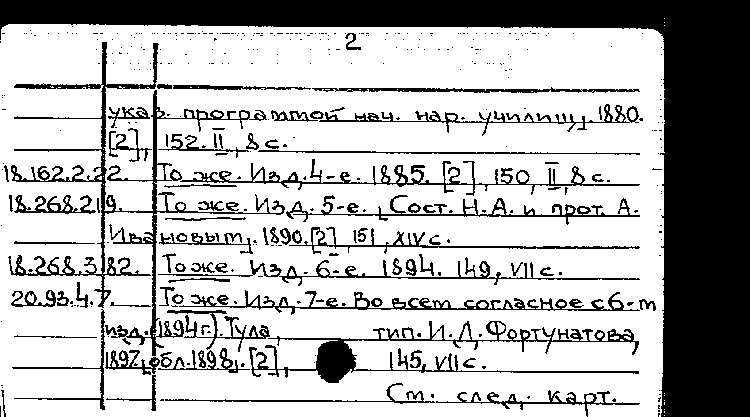 2
указ. программой нач. нар. училищ, 1880.
[2], 152. II, 8 с.
18.162.2.22. То же. Изд. 4-е. 1885. [2], 150, II, 8 с.
18.268.2.19. То же. Изд. 5-е. [Сост. Н.А. и прот. А.
Ивановым]. 1890. [2], 151, XIV с.
18.268.3.82. То же. Изд. 6-е. 1894. 149, VII с.
20.93.4.7. То же. Изд. 7-е. Во всем согласное с 6-м
изд. (1894 г.). Тула, тип. И.Д. Фортунатова,
1897, [обл. 1898]. [2], 145, VII с.
См. след. карт.